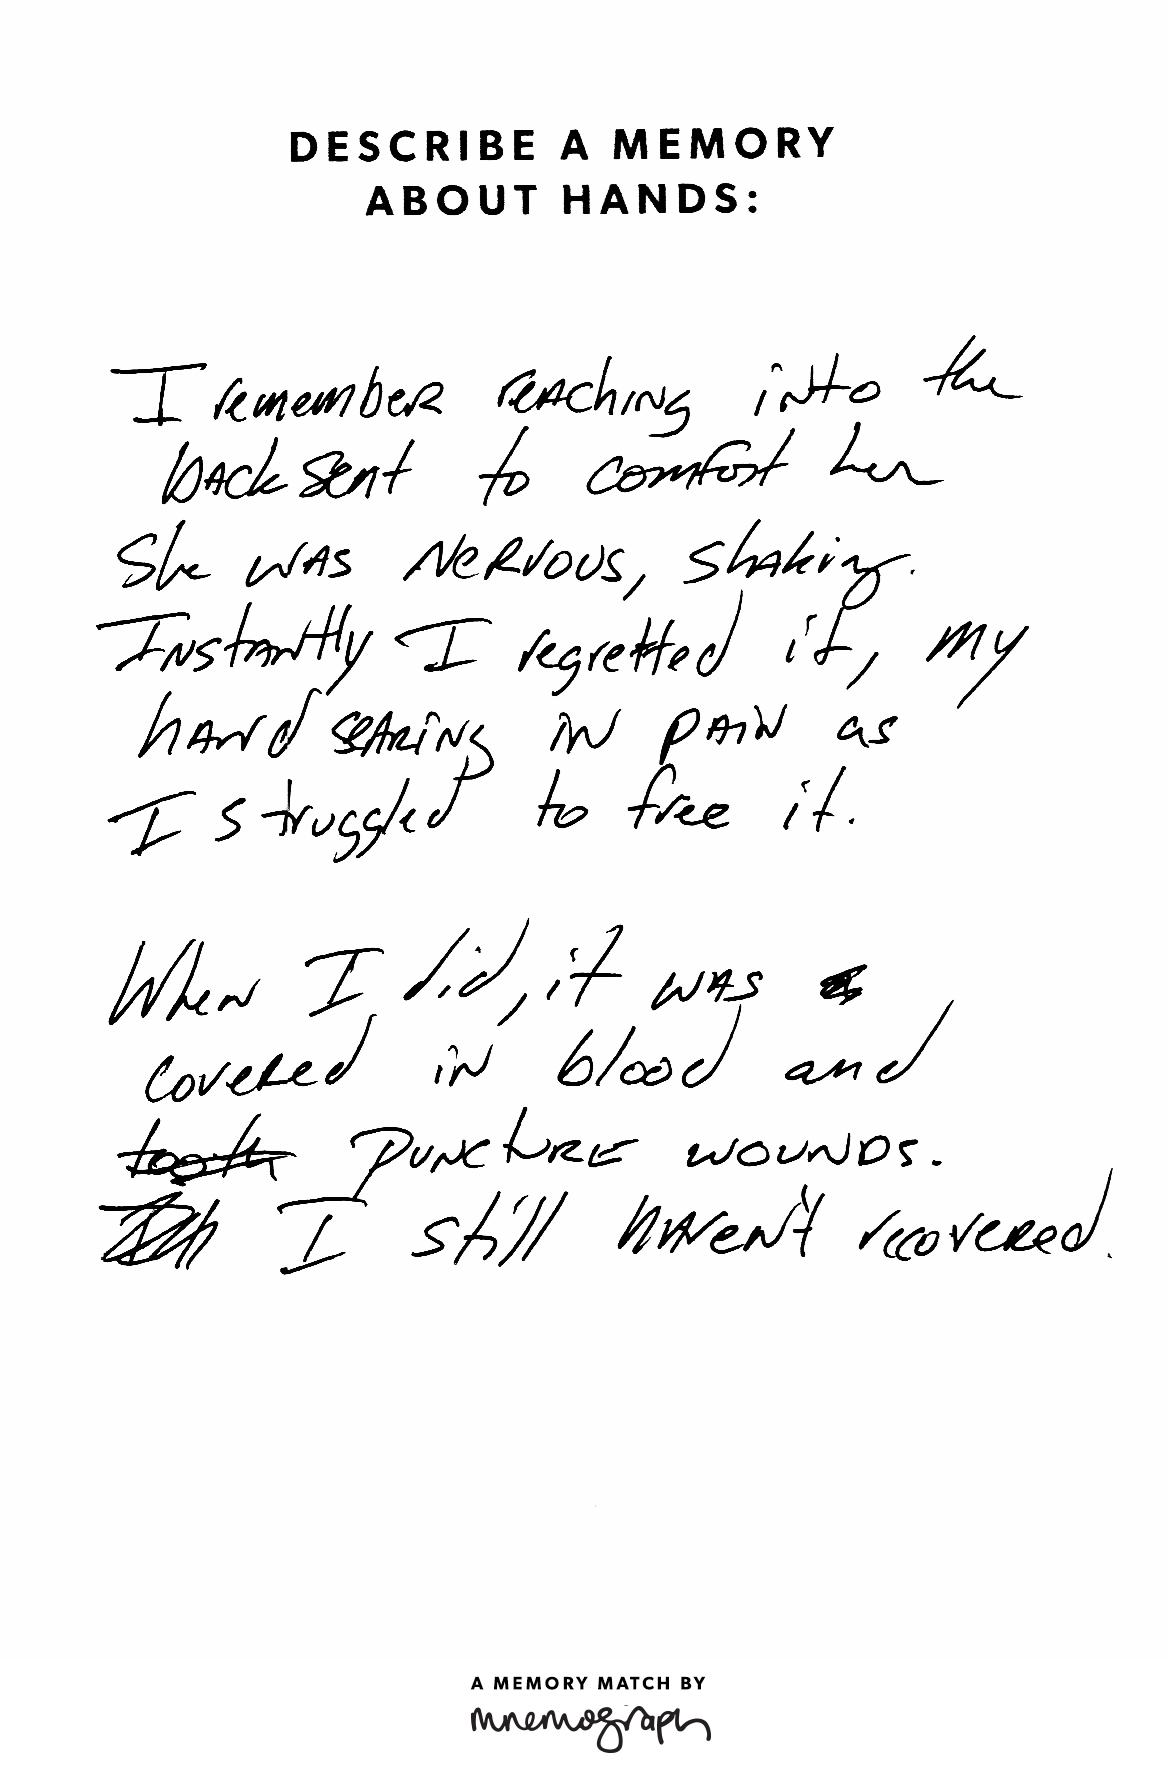 DESCRIBE A MEMORY
ABOUT HANDS:
I remember reaching into the
back seat to comfort her
She was nervous, shaking.
Instantly I regretted it, my
hand searing in pain as
I struggled to free it.
When I did, it was
covered in blood and
tooth puncture wounds.
I still haven't recovered.
A MEMORY MATCH BY
mnemograph